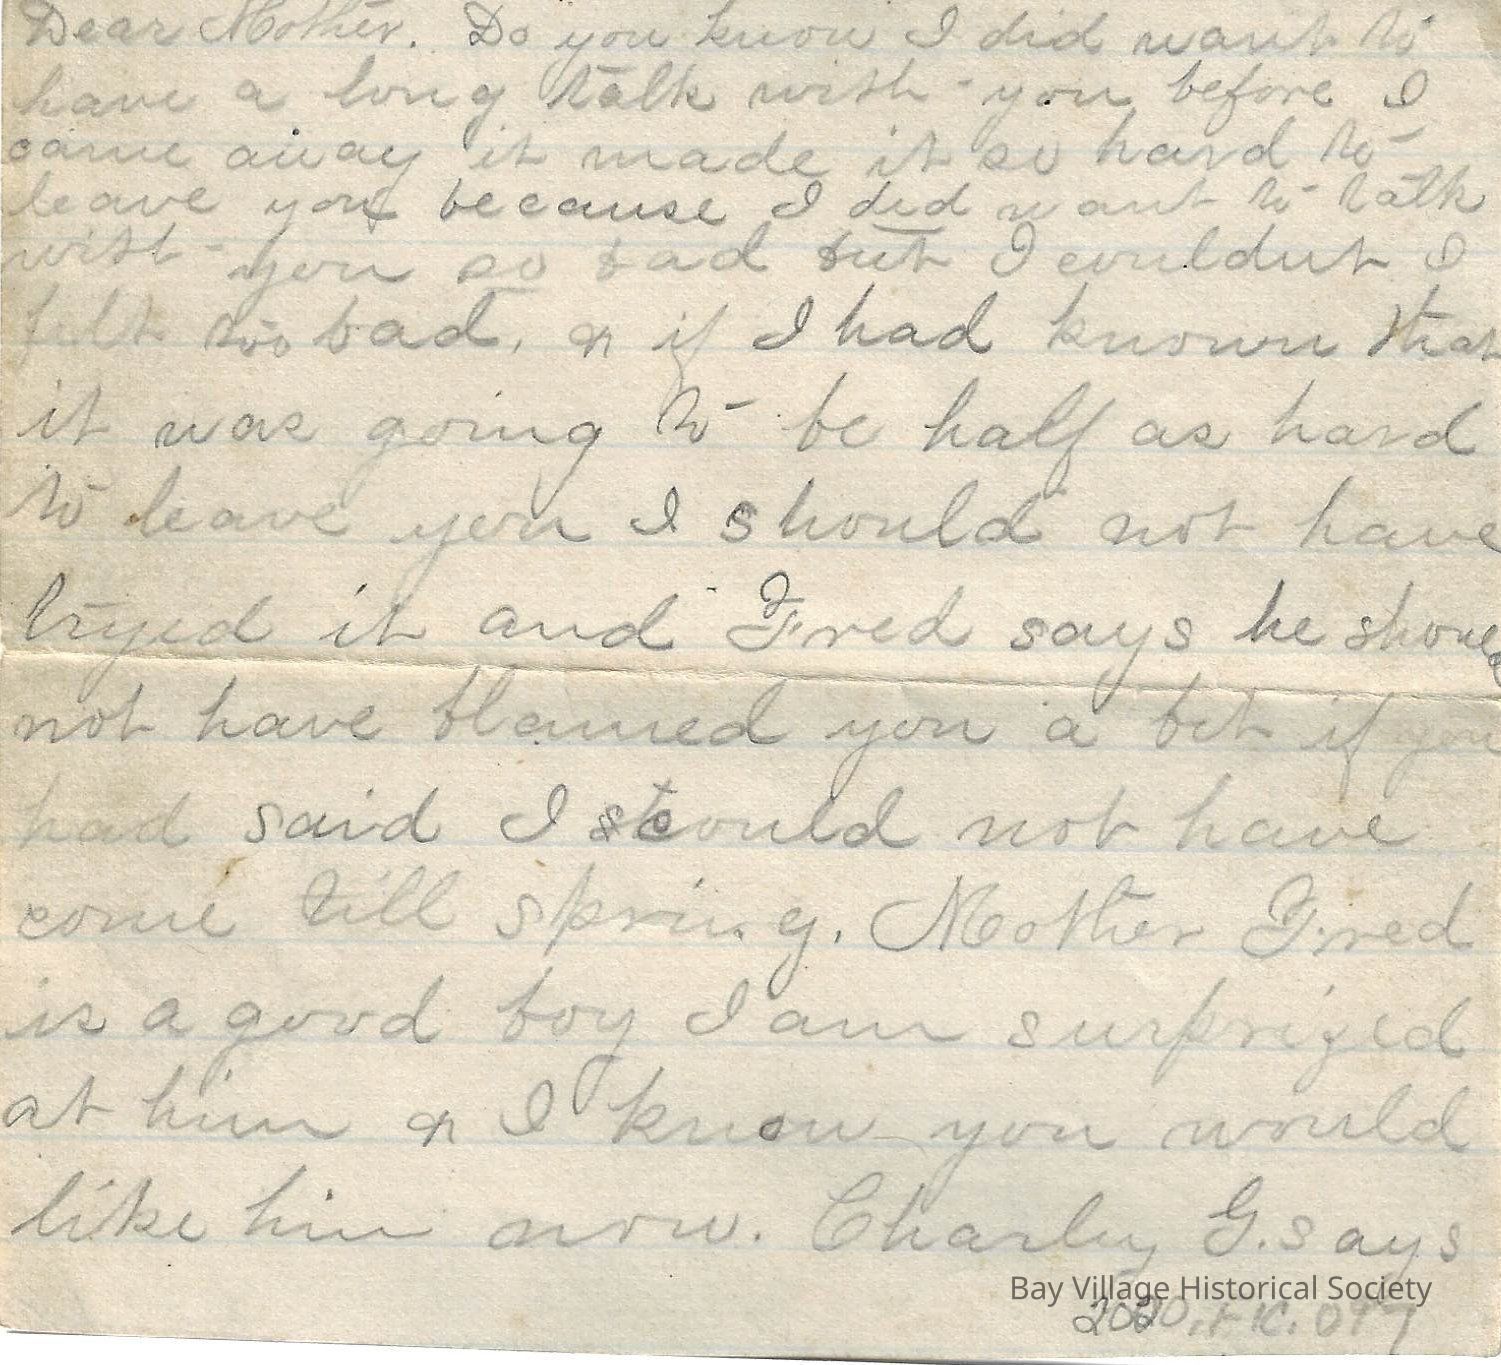 Dear Mother. Do you know I did want to
have a long talk with you before I
came away it made it so hard to
leave you because I did want to talk
with you so bad but I couldnt I
felt too bad, & if I had known that
it was going to be half as hard
to leave you I should not have
tryed it and Fred says he should
not have blamed you a bit if you
had said I should not have
come till spring. Mother Fred
is a good boy I am surprized
at him & I know you would
like him now. Charley G. says
Bay Village Historical Society
2020.FIC.097